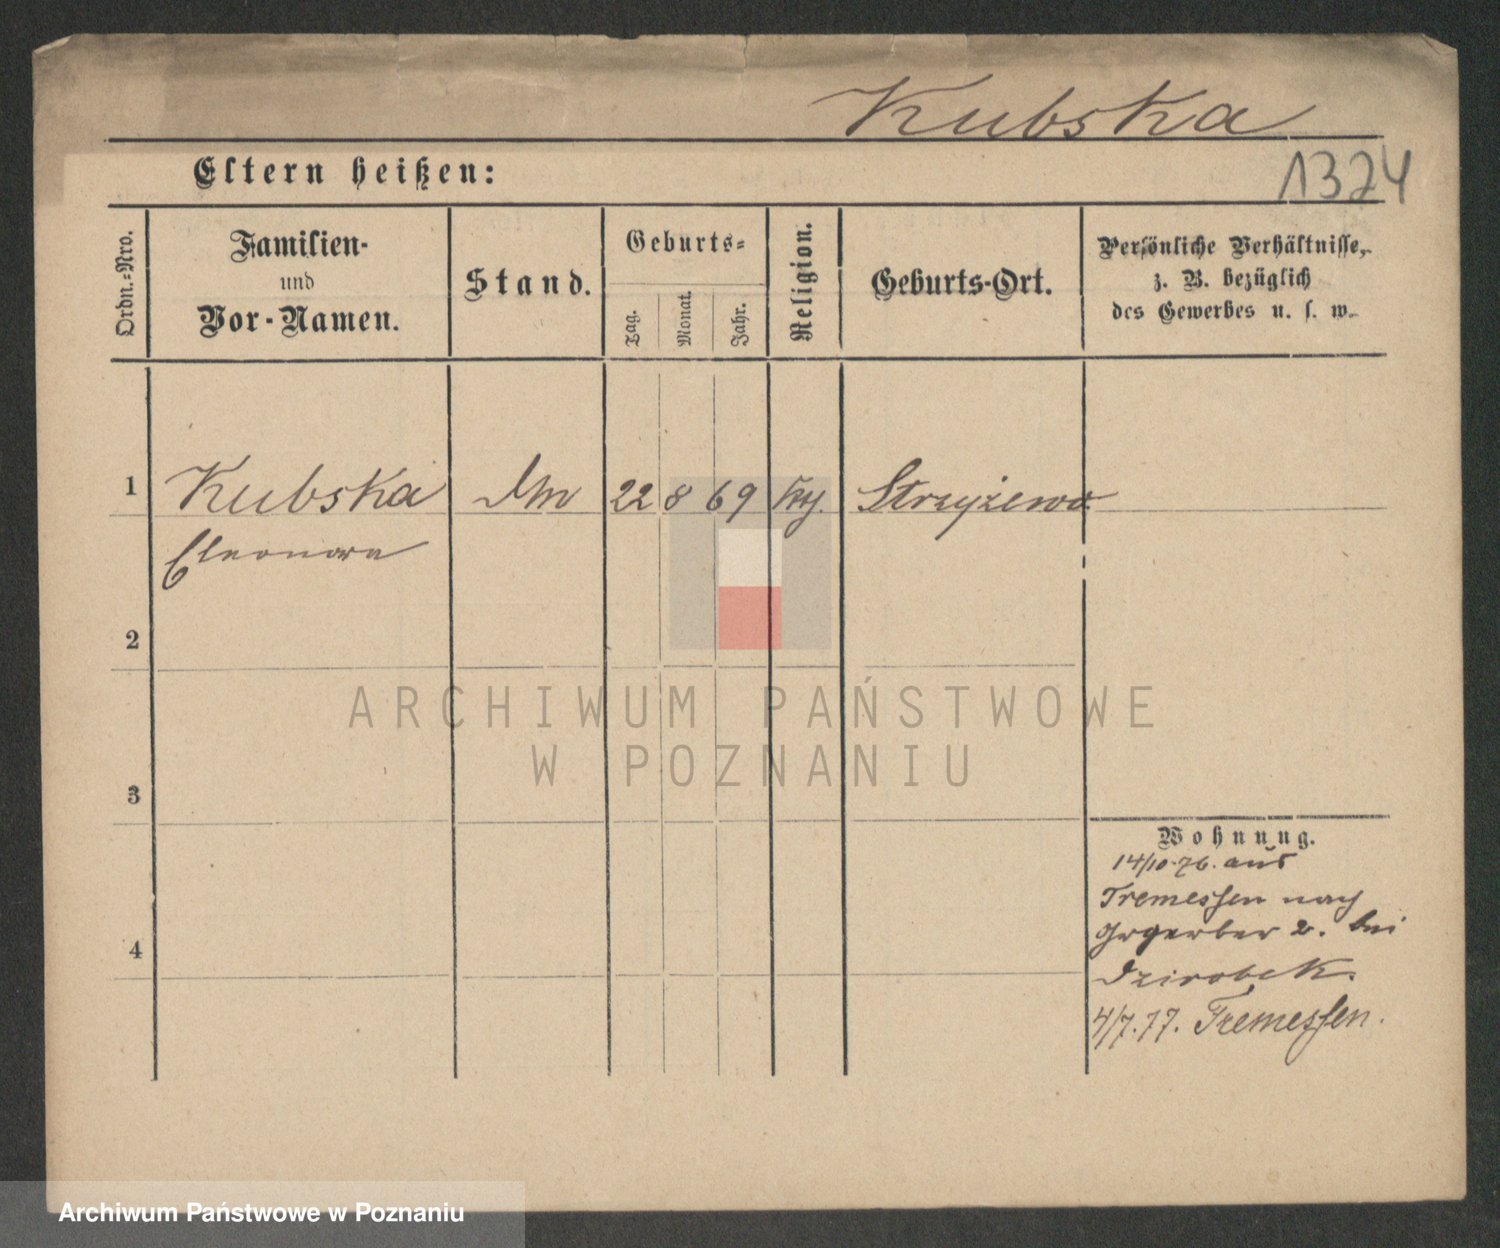 Kubska
1324
Eltern heißen:
Ordn.-Nro.
Familien-
und
Vor-Namen.
Stand.
Geburts-
Tag.
Monat.
Jahr.
Religion.
Geburts-Ort.
Persönliche Verhältnisse,
z. B. bezüglich
des Gewerbes u. s. w.
1 Kubska 22 8 69 Strzyżewo
Eleonora
2
3
4
Wohnung.
14/10.76. aus
Tremessen nach
Grgerber 2. bei
4/7.77. Tremessen.
ARCHIWUM PAŃSTWOWE
W POZNANIU
Archiwum Państwowe w Poznaniu